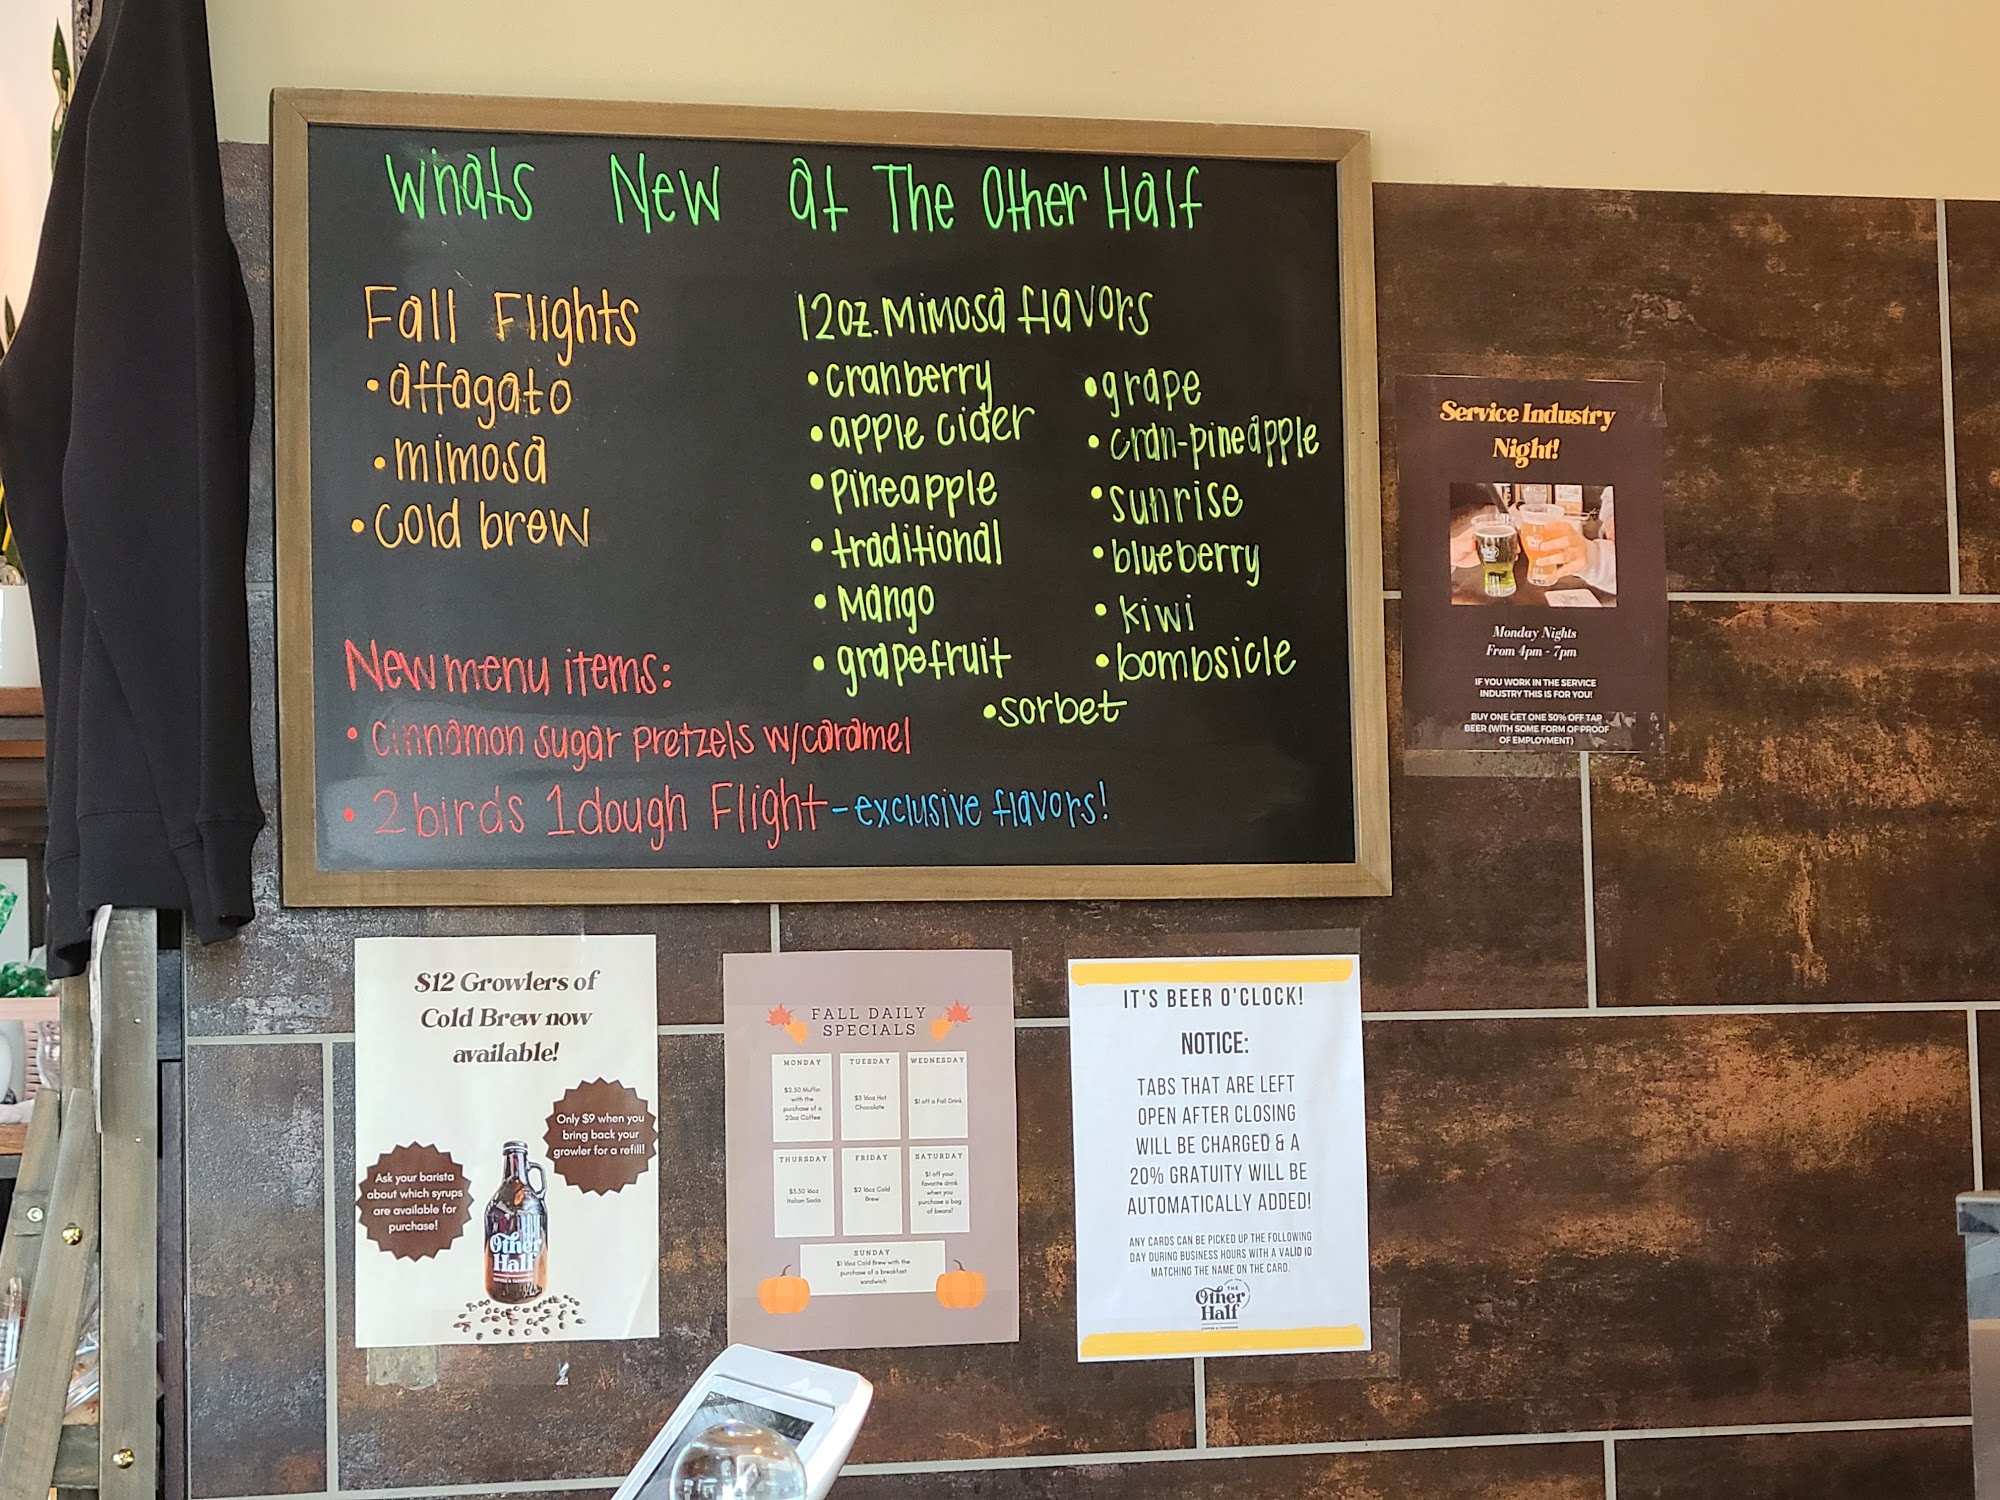 Whats New at The Other Half
Fall Flights
• affagato
• mimosa
• cold brew
12oz. Mimosa flavors
• cranberry
• apple cider
• pineapple
• traditional
• Mango
• grapefruit
• grape
• cran-pineapple
• sunrise
• blueberry
• kiwi
• bombsicle
• sorbet
New menu items:
• cinnamon sugar pretzels w/caramel
• 2 birds 1 dough Flight - exclusive flavors!
Service Industry
Night!
Monday Nights
From 4pm - 7pm
IF YOU WORK IN THE SERVICE
INDUSTRY THIS IS FOR YOU!
BUY ONE GET ONE 50% OFF TAP
BEER (WITH SOME FORM OF PROOF
OF EMPLOYMENT)
$12 Growlers of
Cold Brew now
available!
Only $9 when you
bring back your
growler for a refill!
Ask your barista
about which syrups
are available for
purchase!
Other
Half
FALL DAILY
SPECIALS
MONDAY
$2.50 Muffin
with the
purchase of a
20oz Coffee
TUESDAY
$3 16oz Hot
Chocolate
WEDNESDAY
$1 off a Fall Drink
THURSDAY
$3.50 16oz
Italian Soda
FRIDAY
$2 16oz Cold
Brew
SATURDAY
$1 off your
favorite drink
when you
purchase a bag
of beans!
SUNDAY
$1 16oz Cold Brew with the
purchase of a breakfast
sandwich
IT'S BEER O'CLOCK!
NOTICE:
TABS THAT ARE LEFT
OPEN AFTER CLOSING
WILL BE CHARGED & A
20% GRATUITY WILL BE
AUTOMATICALLY ADDED!
ANY CARDS CAN BE PICKED UP THE FOLLOWING
DAY DURING BUSINESS HOURS WITH A VALID ID
MATCHING THE NAME ON THE CARD.
THE
Other
Half
COFFEE & TAPROOM